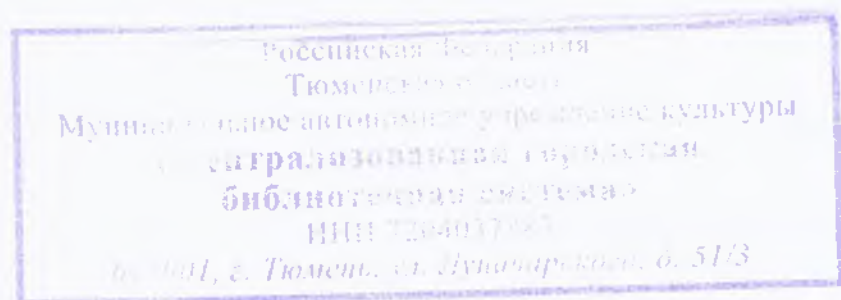 Российская Федерация
Тюменская область
Муниципальное автономное учреждение культуры
централизованная городская
библиотечная система»
ИНН
г. Тюмень, ул. Луначарского, д. 51/3